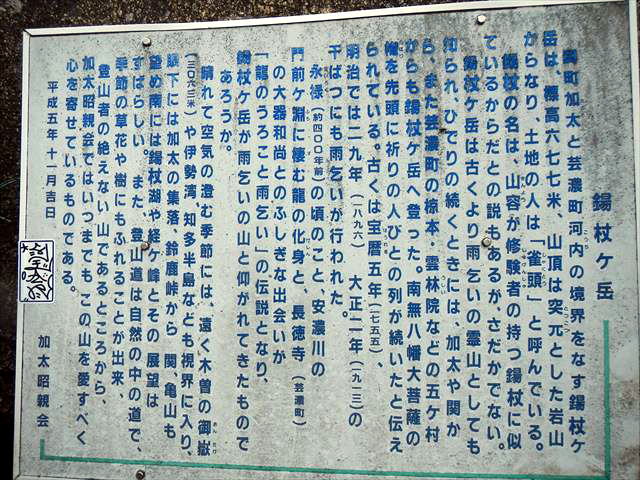 錫杖ケ岳
関町加太と芸濃町河内の境界をなす錫杖ケ
岳は、標高六七七米、山頂は突元とした岩山
からなり、土地の人は「雀頭」と呼んでいる。
錫杖の名は、山容が修験者の持つ錫杖に似
ているからだとの説もあるが、さだかでない。
錫杖ケ岳は古くより雨乞いの霊山としても
知られ、ひでりの続くときには、加太や関か
ら、また芸濃町の椋本・雲林院などの五ケ村
からも錫杖ケ岳へ登った。南無八幡大菩薩の
幟を先頭に祈りの人びとの列が続いたと伝え
られている。古くは宝暦五年(一七五五)、
明治では二九年(一八九六)大正二年(一九一三)の
干ばつにも雨乞いが行われた。
永禄(約四〇〇年前)の頃のこと、安濃川の
門前ケ淵に棲む龍の化身と、長徳寺(芸濃町)
の大器和尚とのふしぎな出会いが
「龍のうろこと雨乞い」の伝説となり、
錫杖ケ岳が雨乞いの山と仰がれてきたもので
あろうか。
晴れて空気の澄む季節には、遠く木曽の御嶽
(三〇六三米)や伊勢湾、知多半島なども視界に入り、
眼下には加太の集落、鈴鹿峠から 関、亀山も
望め南には錫杖湖や経ケ峰とその展望は
すばらしい。また、登山道は自然の中の道で、
季節の草花や樹にもふれることが出来、
登山者の絶えない山であるところから、
加太昭親会ではいつまでも この山を愛すべく
心を寄せているものである。
平成五年十一月吉日
加太昭親会